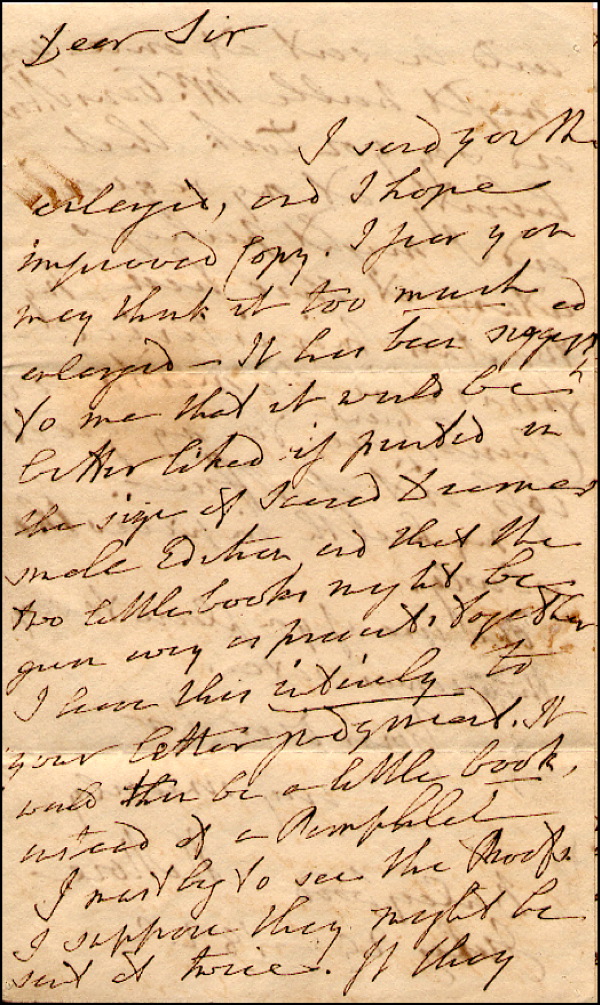 Dear Sir
I send you the
enlarged, and I hope
improved Copy. I fear you
may think it too much
enlarged – It has been suggested
to me that it would be
better liked if printed in
the size of Sacred Dramas
small Edition and that the
two little books might be
given away as presents together
I leave this intirely to
your better judgment. It
would then be a little book,
instead of a Pamphlet
I must beg to see the Proofs
I suppose they might be
sent at twice. If they